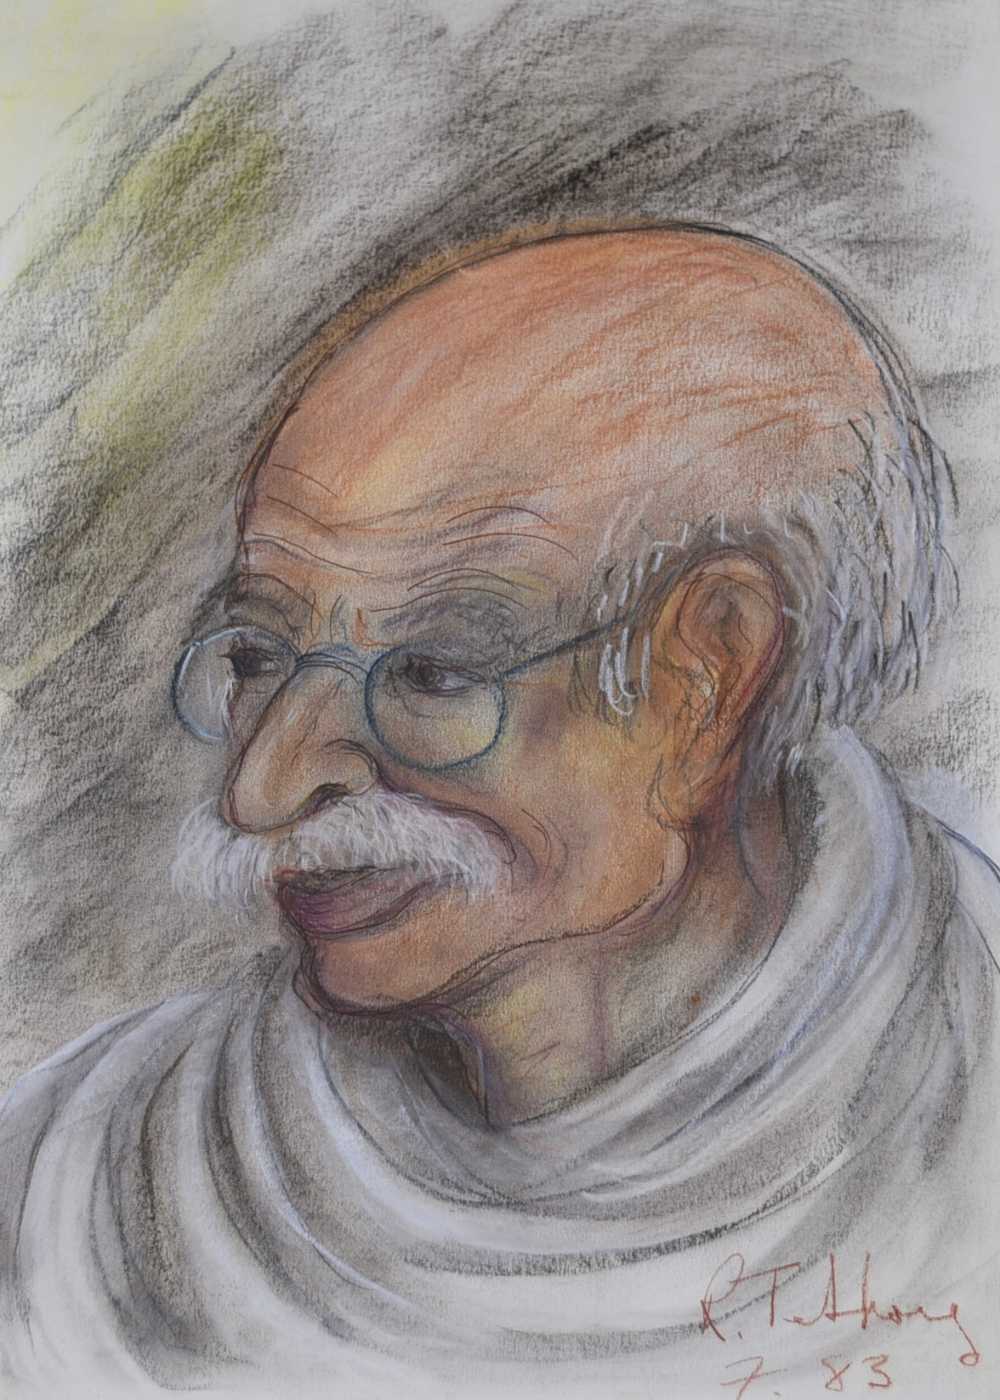 R. Tethong
7. 83